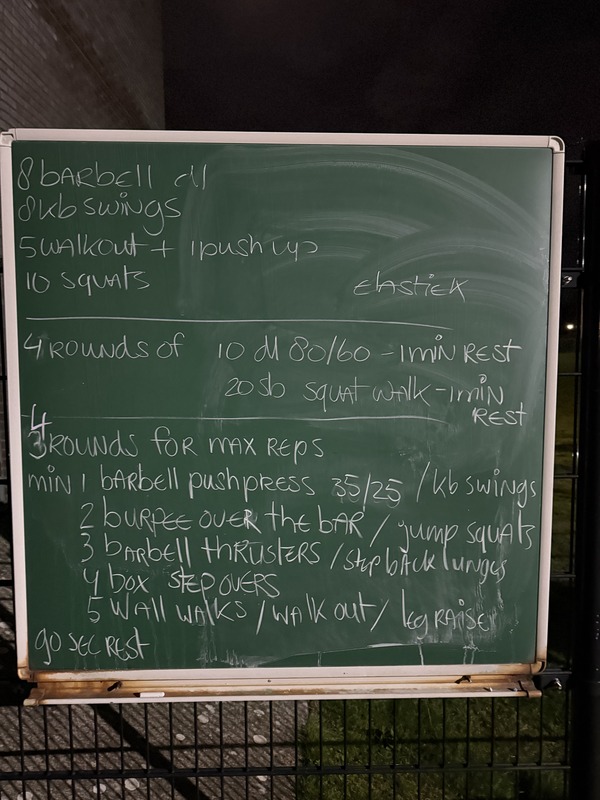 8 BARBELL dl
8 kb swings
5 walkout + 1 push up
10 squats
elastiek
4 ROUNDS of 10 dl 80/60 - 1 min REST
20 sb squat walk - 1 min
REST
4 ROUNDS for MAX REPS
min 1 barbell pushpress 35/25 / kb swings
2 burpee over the bar / jump squats
3 barbell thrusters / step back lunges
4 box step overs
5 wall walks / walk out / leg raises
90 sec rest